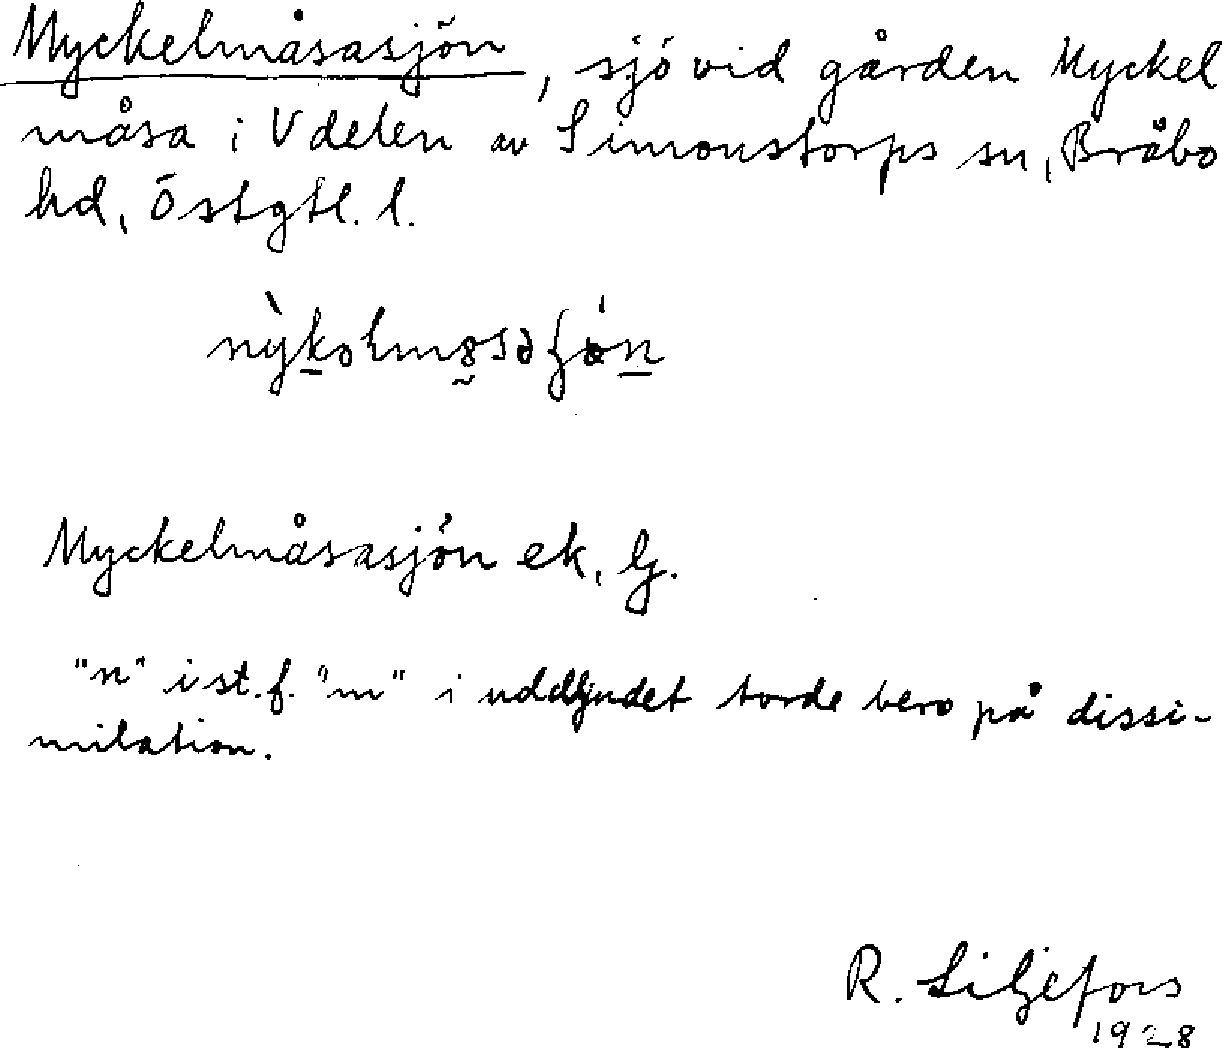 Myckelmåsasjön, sjö vid gården Myckel
måsa i V delen av Simonstorps sn, Bråbo
hd, Östgtl. l.
Myckelmåsasjön ek, lj.
"n" i st. f. "m" i uddljudet torde bero på dissi-
milation.
R. Liljefors
1928